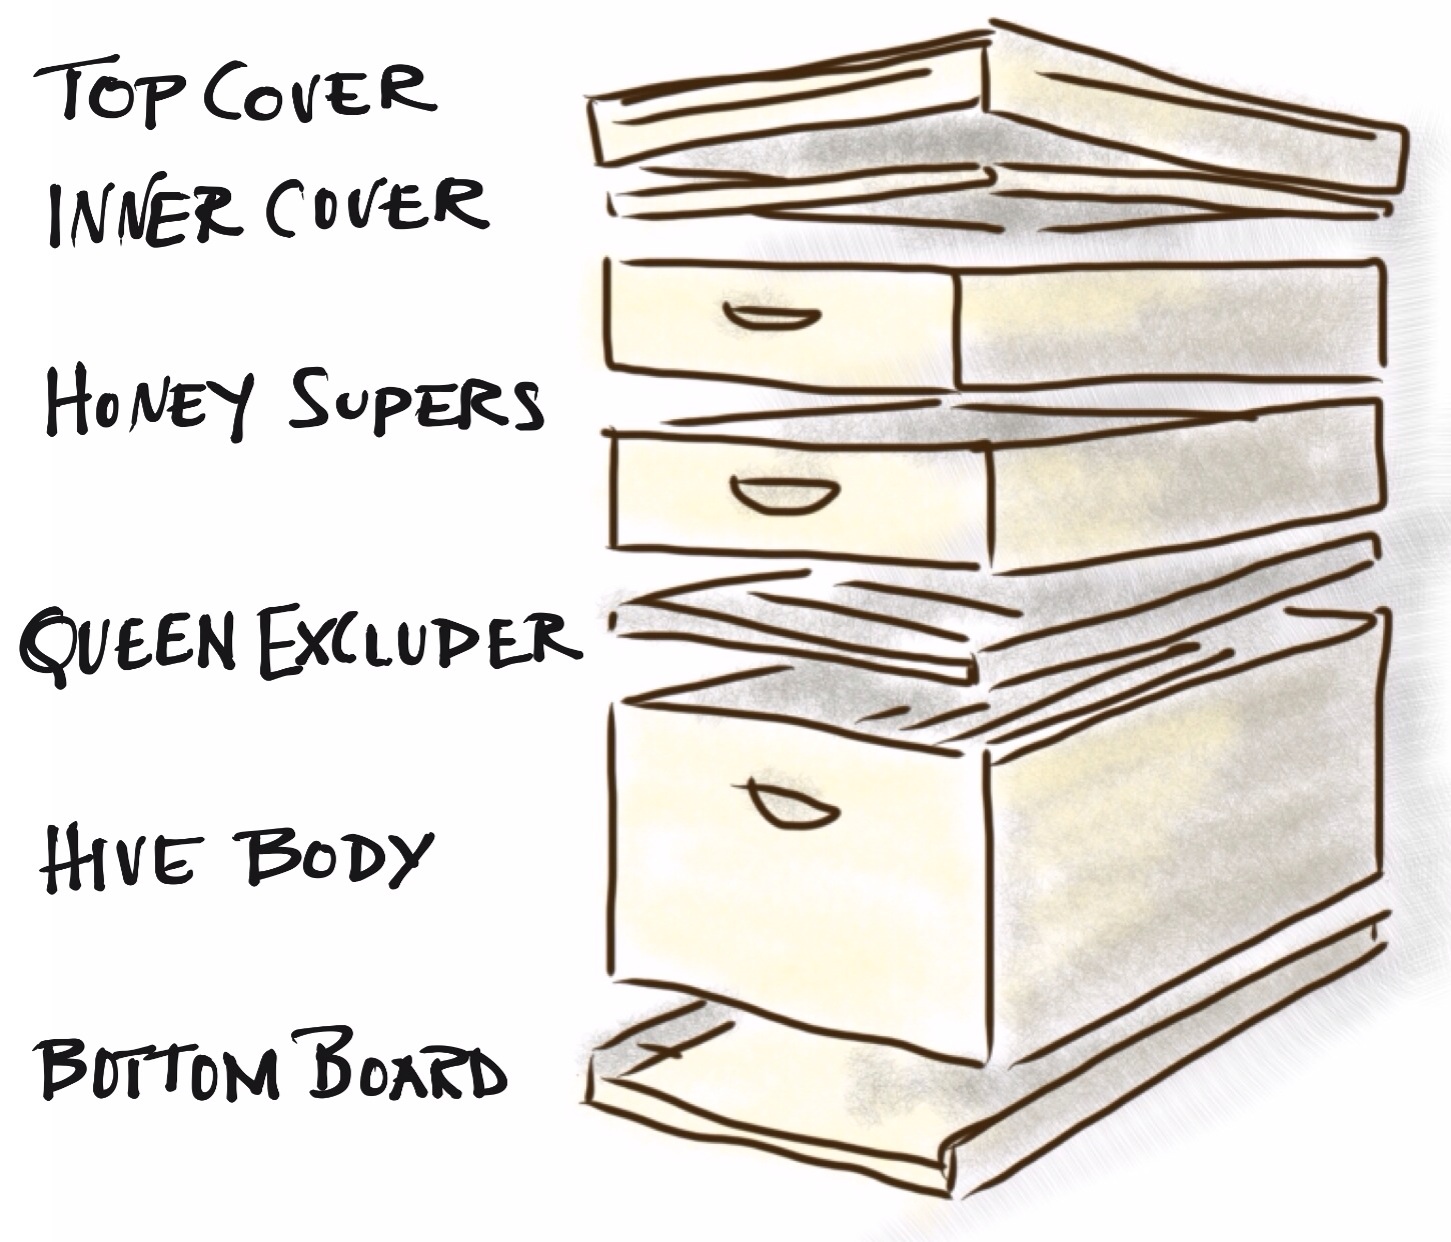 TOP COVER
INNER COVER
HONEY SUPERS
QUEEN EXCLUDER
HIVE BODY
BOTTOM BOARD